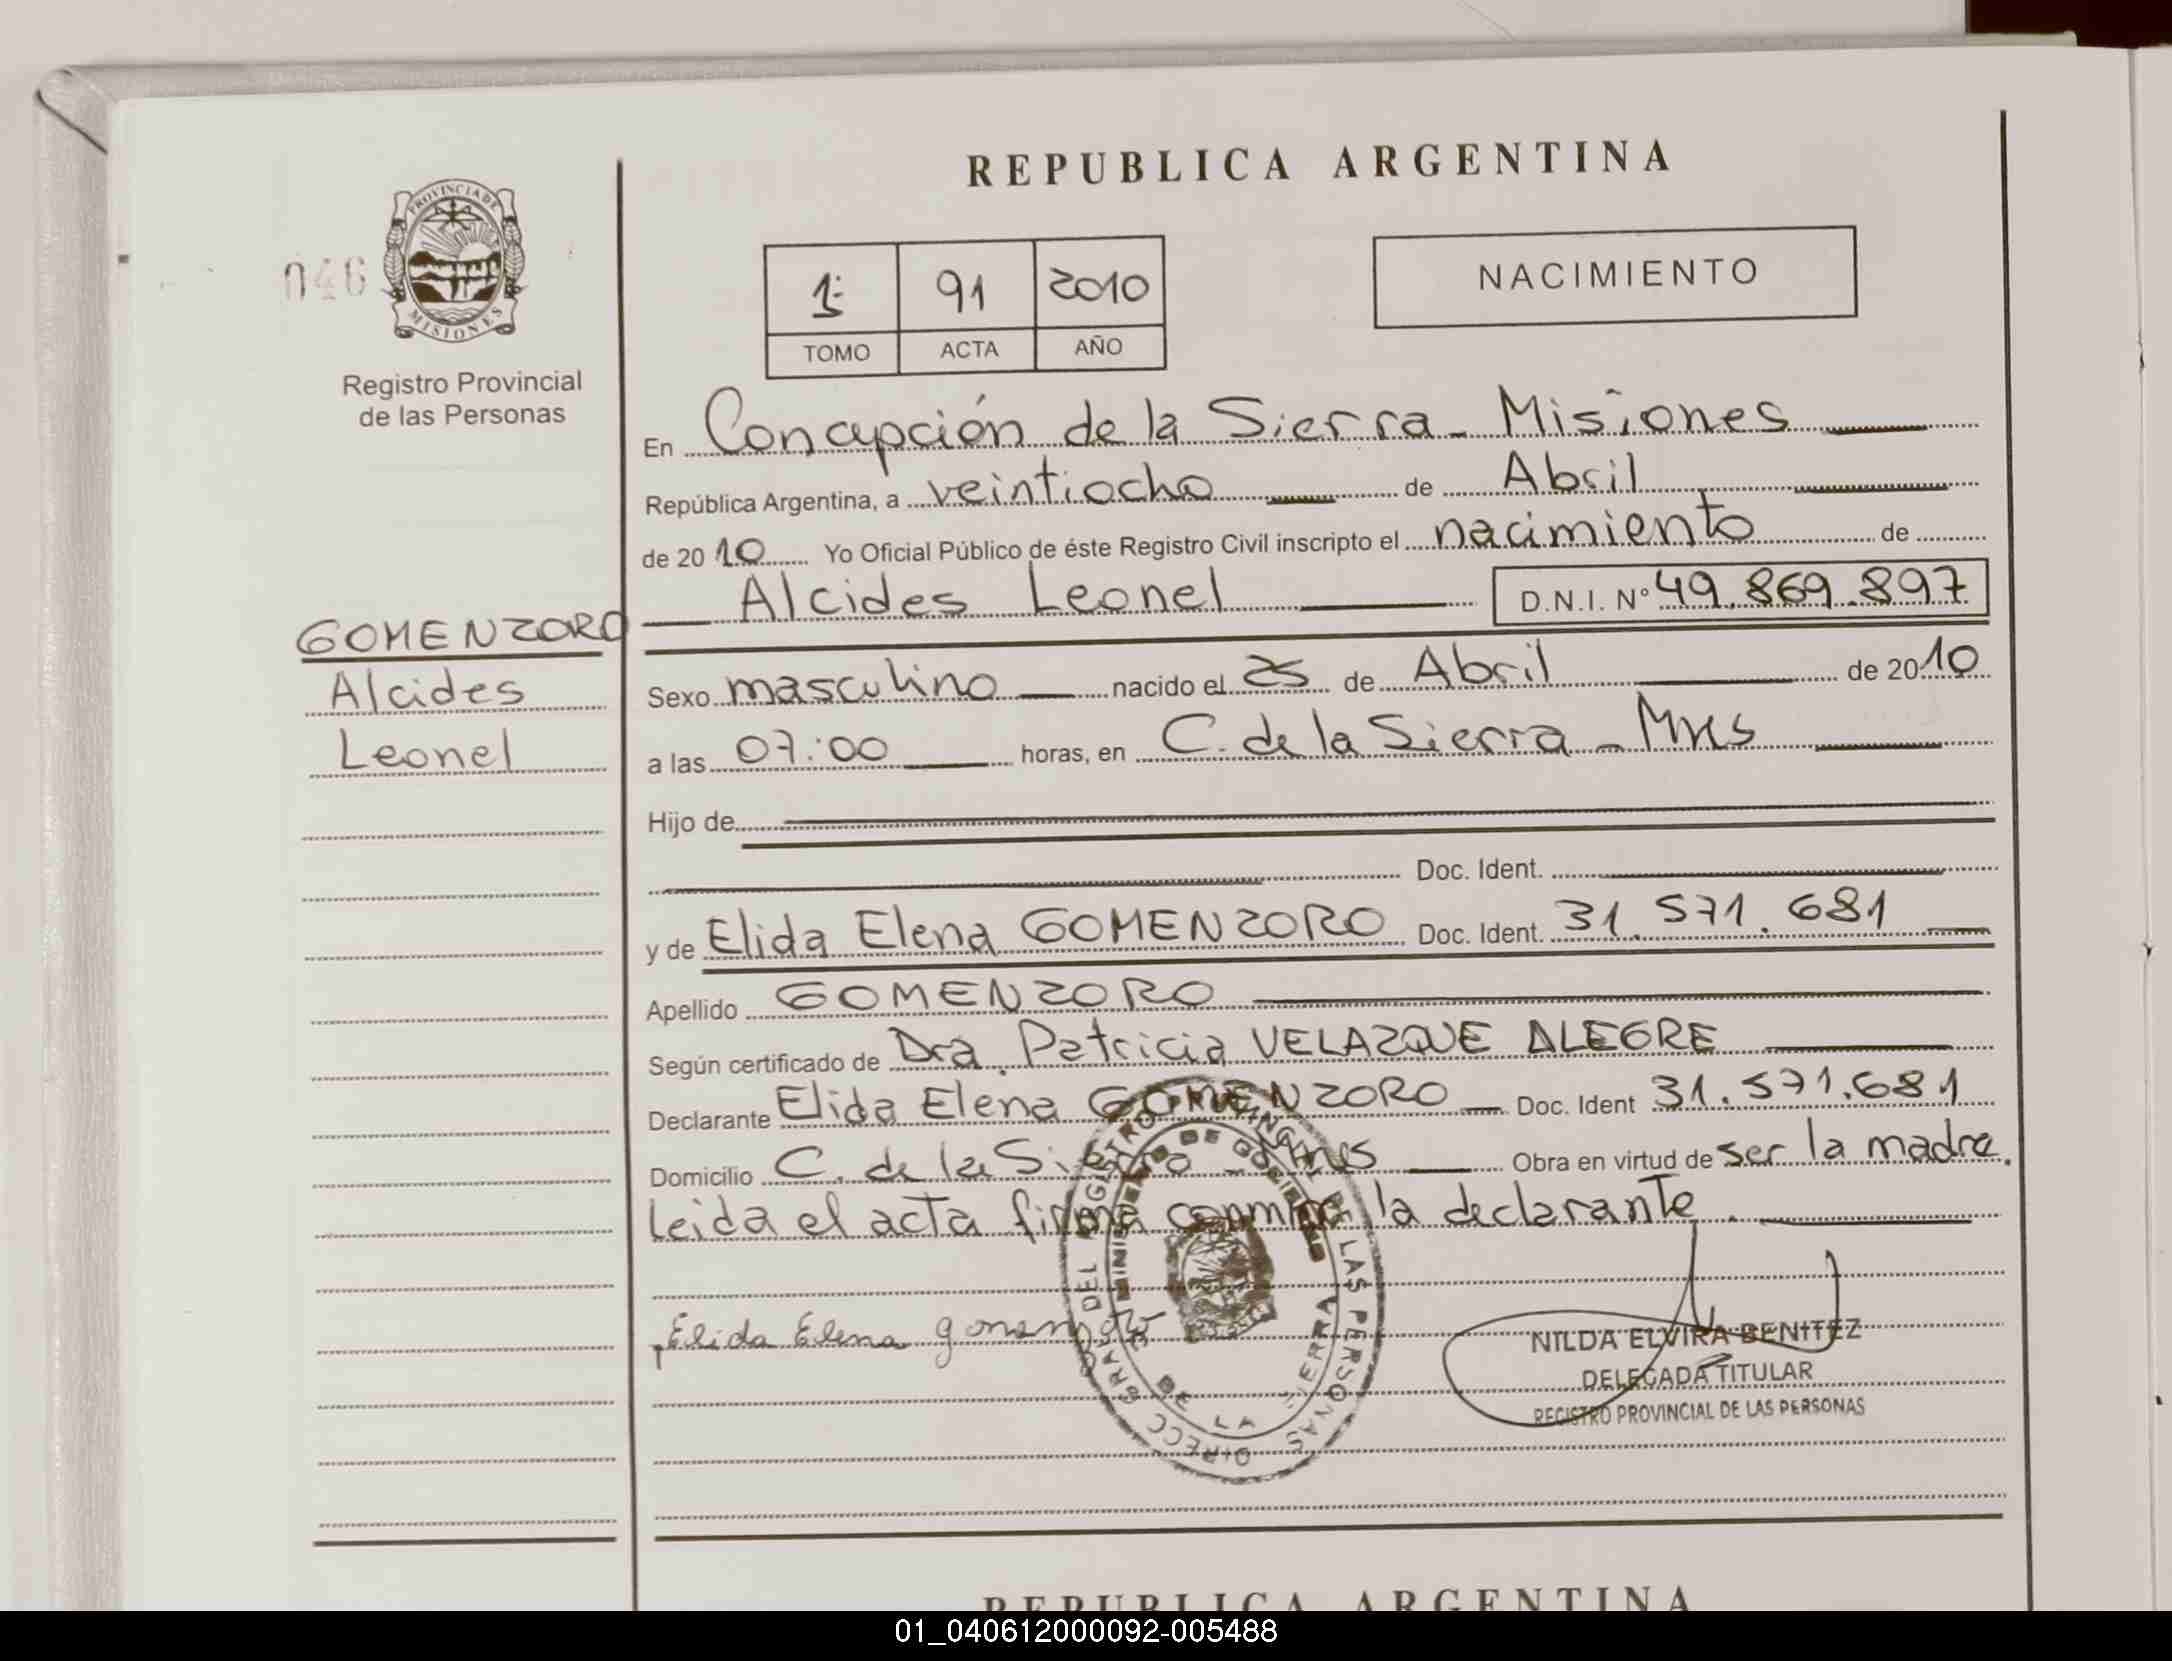 REPUBLICA ARGENTINA
046
PROVINCIA DE
MISIONES
Registro Provincial
de las Personas
1º 91 2010
TOMO ACTA AÑO
NACIMIENTO
En Concepción de la Sierra - Misiones
República Argentina, a veintiocho de Abril
de 2010 Yo Oficial Público de éste Registro Civil inscripto el nacimiento de
Alcides Leonel D.N.I. Nº 49.869.897
GOMENZORO
Alcides
Leonel
Sexo masculino nacido el 25 de Abril de 2010
a las 07:00 horas, en C. de la Sierra - Mnes
Hijo de
Doc. Ident.
y de Elida Elena GOMENZORO Doc. Ident. 31.571.681
Apellido GOMENZORO
Según certificado de Dra. Patricia VELAZQUE ALEGRE
Declarante Elida Elena GOMENZORO Doc. Ident 31.571.681
Domicilio C. de la Sierra - Mnes Obra en virtud de ser la madre.
Leida el acta firma conmigo la declarante.
Elida Elena
DIRECC GRAL DEL REGISTRO PROVINCIAL DE LAS PERSONAS
MINISTERIO DE GOBIERNO
DE LA SIERRA
NILDA ELVIRA BENITEZ
DELEGADA TITULAR
REGISTRO PROVINCIAL DE LAS PERSONAS
REPUBLICA ARGENTINA
01_040612000092-005488